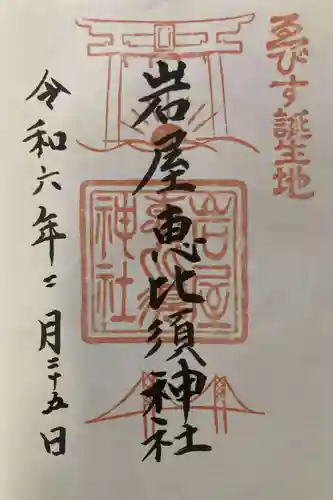 ゑびす誕生地
岩屋恵比須神社
岩屋恵比須神社
令和六年二月二十五日